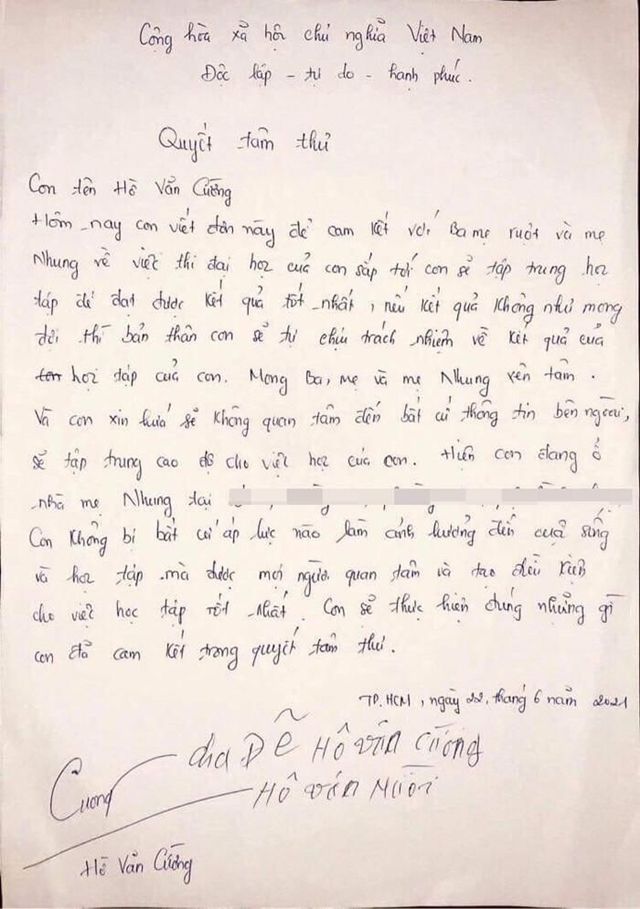 Cộng hòa xả hội chủ nghỉa Việt Nam
Độc lập - tự do - hạnh phúc.
Quyết tâm thư
Con tên Hồ Văn Cường
Hôm nay con viết đơn này để cam kết với Ba mẹ ruột và mẹ
Nhung về việc thi đại học của con sắp tới con sẻ tập trung học
tập để đạt được kết quả tốt nhất, nếu kết quả không như mong
đợi thì bản thân con sẻ tự chịu trách nhiệm về kết quả của
học tập của con. Mong Ba, mẹ và mẹ Nhung yên tâm.
Và con xin hứa sẻ không quan tâm đến bất cứ thông tin bên ngoài,
sẻ tập trung cao độ cho việc học của con. Hiện con đang ở
nhà mẹ Nhung tại
Con không bị bất cứ áp lực nào làm ảnh hưởng đến cuộ sống
và học tập mà được mọi người quan tâm và tạo điều kiện
cho việc học tập tốt nhất. Con sẻ thực hiện đúng những gì
con đả cam kết trong quyết tâm thư.
TP.HCM, ngày 22, tháng 6 năm 2021
cha Đẽ Hồ Văn Cường
Cương Hồ Văn Mười
Hồ Văn Cường